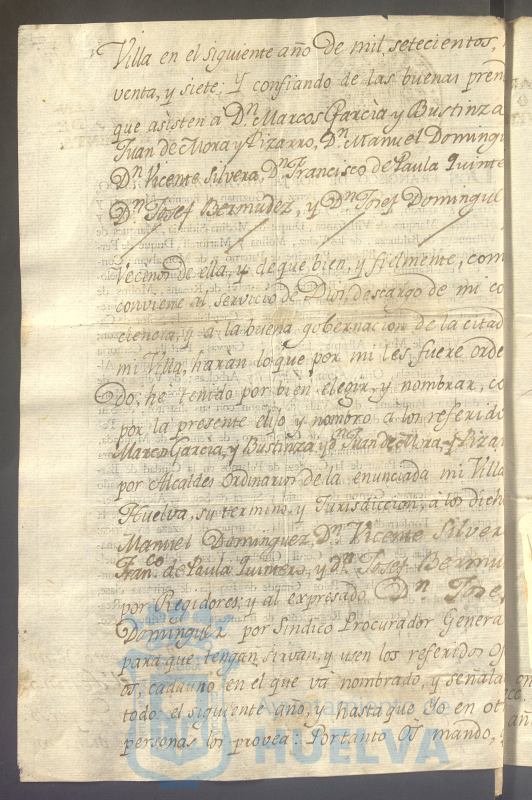 Villa en el siguiente año de mil, setecientos,
venta, y siete: Y confiando de las buenas pren
que asisten a Dⁿ. Marcos Garcia y Bustinza
Juan de Mora y Pizarro, Dⁿ. Manuel Domingu
Dⁿ. Vicente Silvera, Dⁿ. Francisco de Paula Quinte
Dⁿ. Josef Bermudez, y Dⁿ. Josef Domingue
Vecinos de ella, y de que bien, y fielmente, com
conviene al servicio de Dios, descargo de mi co
ciencia, y a la buena gobernacion de la citad
mi Villa, haràn lo que por mi les fuere orde
do, he tenido por bien elegir, y nombrar, co
por la presente elijo y nombro a los referido
Marcos Garcia, y Bustinza, y Dⁿ. Juan de Mora, y Pizar
por Alcaldes Ordinarios de la enunciada mi Villa
Huelva, su termino, y Jurisdiccion, à los dich
Manuel Dominguez, Dⁿ. Vicente Silver
Franᶜᵒ. de Paula Quintero, y Dⁿ. Josef Bermu
por Regidores; y al expresado Dⁿ. Jose
Dominguez por Sindico Procurador Genera
para que tengan, sirvan, y usen los referidos Of
os, cada uno en el que va nombrado, y señala
todo el siguiente año, y hasta que Yo en ot
personas los provea: Portanto Os mando,
Ayuntamiento
HUELVA